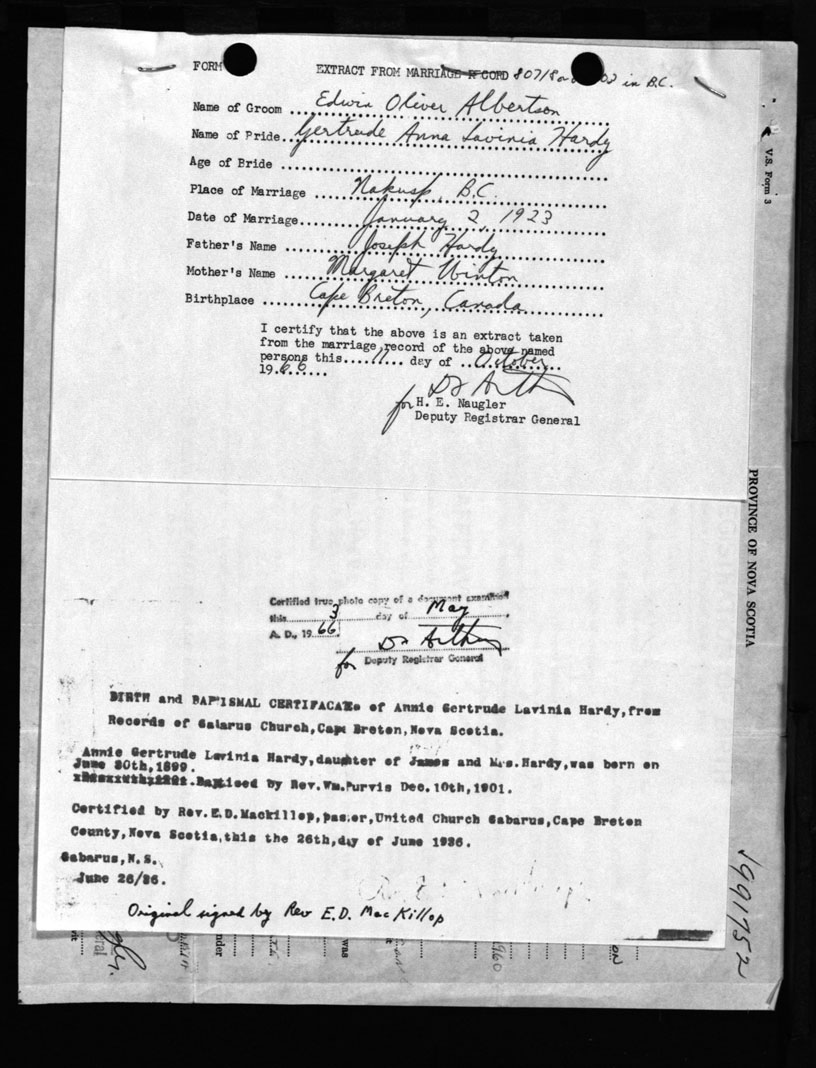 FORM
EXTRACT FROM MARRIAGE RECORD 80718 in B.C.
Name of Groom Edwin Oliver Albertson
Name of Pride Gertrude Anna Lavinia Hardy
Age of Bride
Place of Marriage Nakusp, B.C.
Date of Marriage January 2, 1923
Father's Name Joseph Hardy
Mother's Name Margaret Winton
Birthplace Cape Breton, Canada
I certify that the above is an extract taken
from the marriage record of the above named
persons this 11 day of October
1960
for H. E. Naugler
Deputy Registrar General
V.S. Form 3
PROVINCE OF NOVA SCOTIA
Certified true photo copy of a document examined
this 3 day of May
A. D., 1966
for Deputy Registrar General
BIRTH and BAPTISMAL CERTIFACATE of Annie Gertrude Lavinia Hardy, from
Records of Gabarus Church, Cape Breton, Nova Scotia.
Annie Gertrude Lavinia Hardy, daughter of James and Mrs. Hardy, was born on
June 30th, 1899.
Baptised by Rev. Wm. Purvis Dec. 10th, 1901.
Certified by Rev. E.D. Mackillop, pastor, United Church Gabarus, Cape Breton
County, Nova Scotia, this the 26th, day of June 1936.
Gabarus, N.S.
June 26/36.
Original signed by Rev E.D. MacKillop
1991752
under
was
960